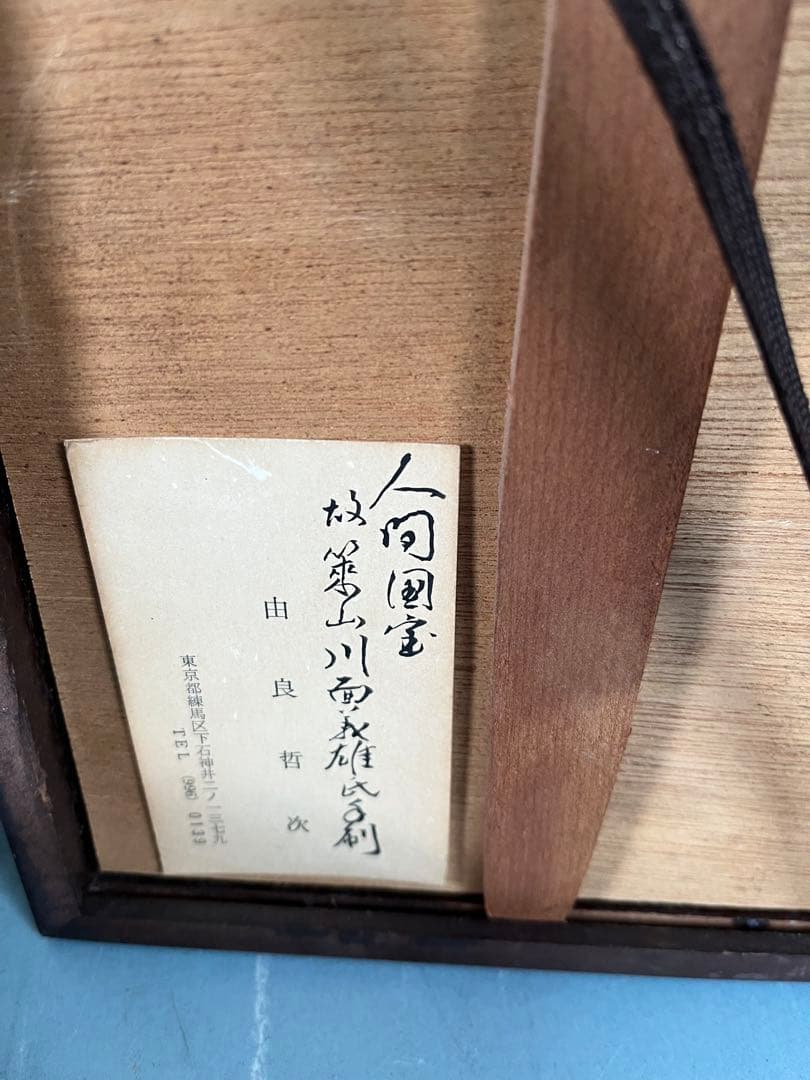 人間国宝
故 策山川面義雄氏手刷
由良哲次
東京都練馬区下石神井二ノ一三七九
TEL (996) 0139